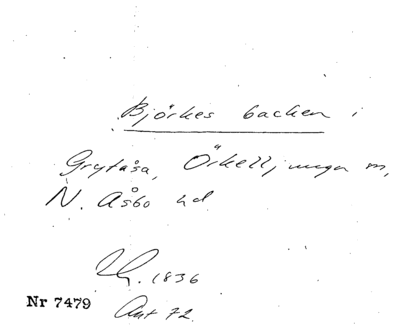 Björkes backen i
Grytåsa, Örkelljunga m,
N. Åsbo hd
. 1836
Nr 7479
Ant 72.